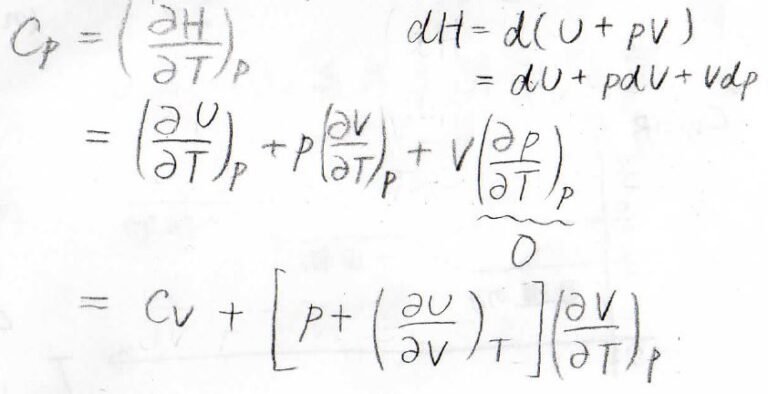 Cp = (∂H/∂T)p dH = d(U + pV)
= dU + pdV + Vdp
= (∂U/∂T)p + p(∂V/∂T)p + V(∂p/∂T)p
0
= Cv + [p + (∂U/∂V)T](∂V/∂T)p